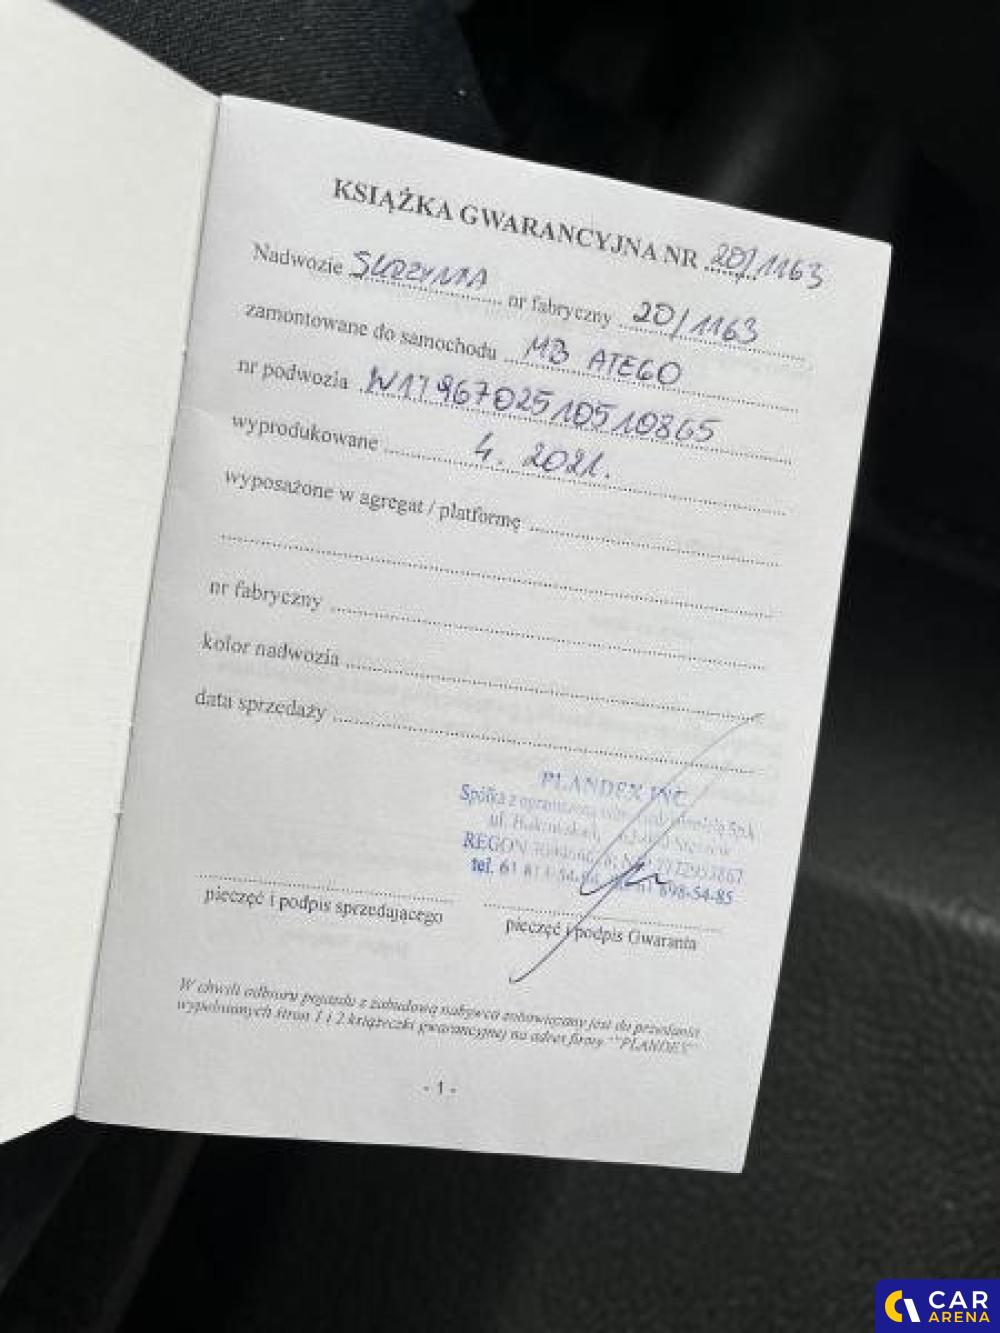 KSIĄŻKA GWARANCYJNA NR 20/1163
Nadwozie SKRZYNIA nr fabryczny 20/1163
zamontowane do samochodu MB ATEGO
nr podwozia W1T96702510510865
wyprodukowane 4. 2021.
wyposażone w agregat / platformę
nr fabryczny
kolor nadwozia
data sprzedaży
PLANDEX INC.
Spółka z
ul.
REGON
tel. 61 813-54-84 698-54-85
pieczęć i podpis sprzedającego
pieczęć i podpis Gwaranta
W chwili odbioru pojazdu z zabudową nabywca zobowiązany jest do przesłania
wypełnionych stron 1 i 2 książeczki gwarancyjnej na adres firmy "PLANDEX"
- 1 -
CAR
ARENA